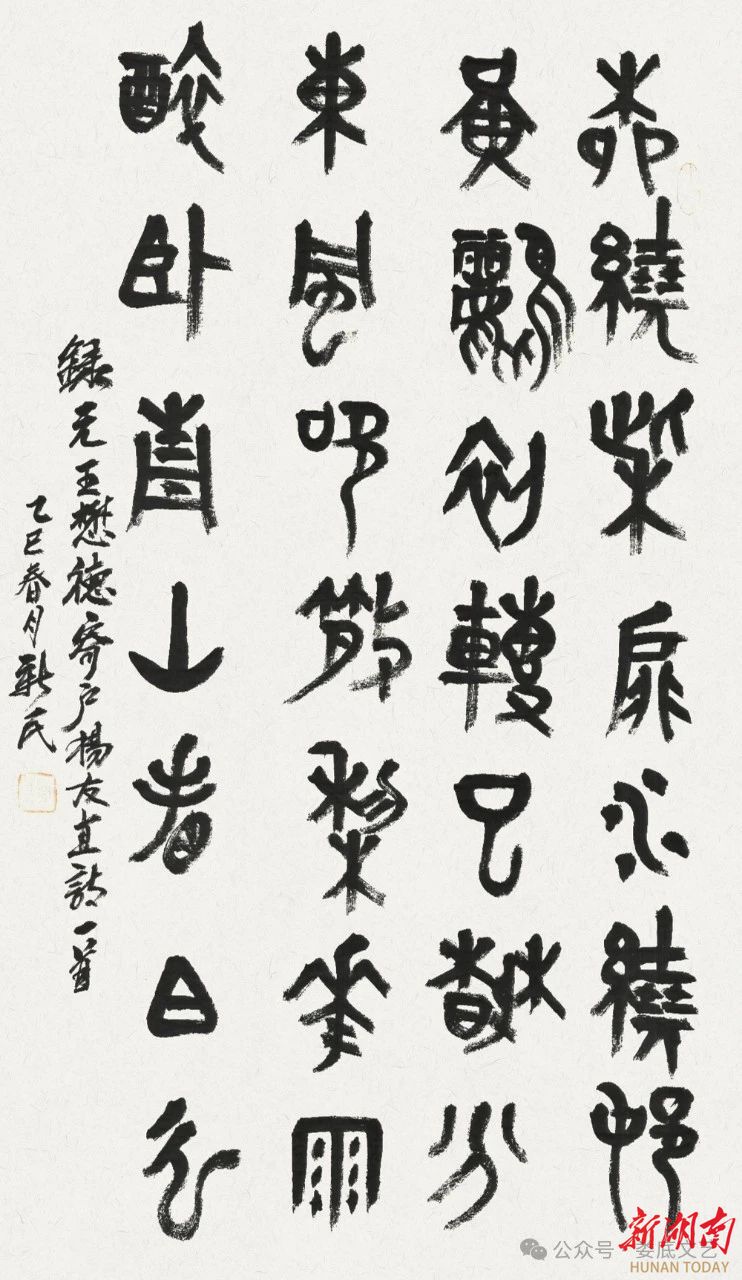 柳繞柴扉水繞邨
黃鸝初轉已春分
東風吹散梨花雨
醉卧青山看白云
錄元王懋德寄户楊友直詩一首
乙巳春月新民
公众号 · 娄底文艺
新湖南
HUNAN TODAY